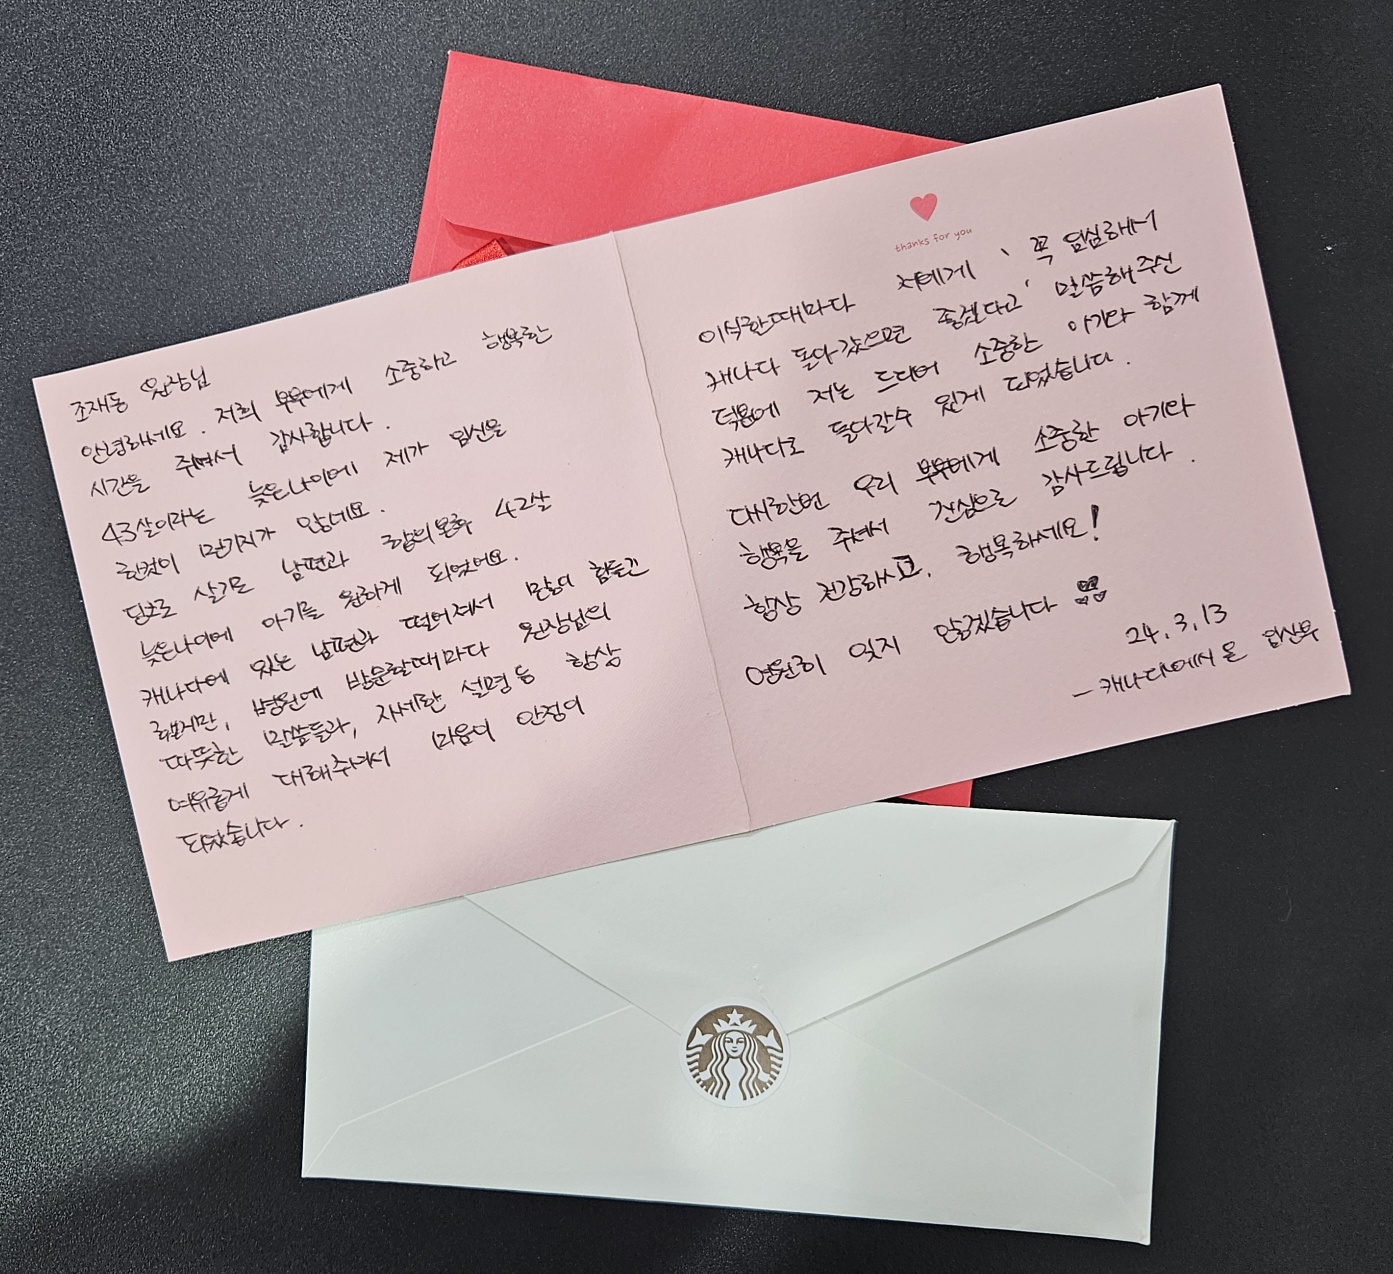 조재동 원장님
안녕하세요. 저희 부부에게 소중하고 행복한
시간을 주셔서 감사합니다.
43살이라는 늦은나이에 제가 임신을
한것이 믿기지가 않네요.
딩크로 살기로 남편과 합의본후 42살
늦은나이에 아기를 원하게 되었어요.
캐나다에 있는 남편과 떨어져서 많이 힘들긴
했지만, 병원에 방문할때마다 원장님의
따뜻한 말씀들과, 자세한 설명 등 항상
여유롭게 대해주셔서 마음이 안정이
되었습니다.
thanks for you
이식할때마다 저에게 '꼭 임신해서
캐나다 돌아갔으면 좋겠다고' 말씀해주신
덕분에 저는 드디어 소중한 아기와 함께
캐나다로 돌아갈수 있게 되었습니다.
다시한번 우리 부부에게 소중한 아기와
행복을 주셔서 진심으로 감사드립니다.
항상 건강하시고, 행복하세요!
영원히 잊지 않겠습니다
24.3.13
- 캐나다에서 온 임산부